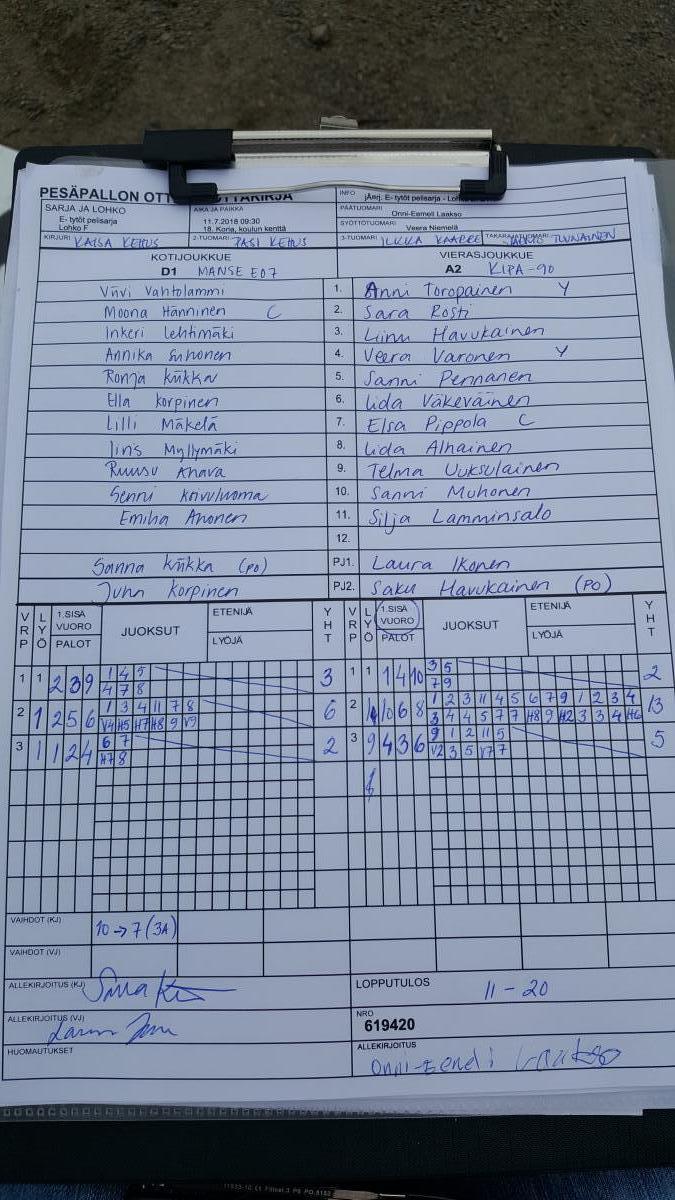 PESÄPALLON OTT
INFO jÄnj. E- tytöt pelisarja -
SARJA JA LOHKO
E- tytöt pelisarja
Lohko F
AIKA JA PAIKKA
11.7.2018 09:30
18. Korja, koulun kenttä
PÄÄTUOMARI
Onni-Eemeli Laakso
SYÖTTÖTUOMARI
Veera Niemelä
KIRJURI KAISA KEHUS 2-TUOMARI PASI KEHUS 3-TUOMARI ILKKA TAKARAJATUOMARI
KOTIJOUKKUE VIERASJOUKKUE
D1 MANSE E07 A2 KIPA-90
Viivi Vahtolammi 1. Anni Toropainen Y
Moona Hänninen C 2. Sara Rosti
Inkeri Lehtimäki 3. Liinu Havukainen
Annika Suhonen 4. Veera Varonen Y
Ronja Kiikka 5. Sanni Pennanen
Ella Korpinen 6. Iida Väkeväinen
Lilli Mäkelä 7. Elsa Pippola C
Iiris Myllymäki 8. Iida Alhainen
Ruusu Ahava 9. Telma Uuksulainen
Senni Koivuluoma 10. Sanni Muhonen
Emilia Ahonen 11. Silja Lamminsalo
12.
Sanna Kiikka (PO) PJ1. Laura Ikonen
Juha Korpinen PJ2. Saku Havukainen (PO)
VRP LYÖ 1.SISÄ VUORO PALOT JUOKSUT ETENIJÄ LYÖJÄ YHT VRP LYÖ 1.SISÄ VUORO PALOT JUOKSUT ETENIJÄ LYÖJÄ YHT
1 1 2 3 9 1 4 5 3 1 1 1 4 10 3 5 2
4 7 8 7 9
2 1 2 5 6 1 3 4 11 7 8 6 2 10 6 8 1 2 3 11 4 5 6 7 9 1 2 3 4 13
V4 H5 H7 H8 9 V9 3 4 4 5 7 7 H8 9 H2 3 3 4 H6
3 1 1 2 4 6 7 2 3 9 4 3 6 9 1 2 11 5 5
H7 8 V2 3 5 V7 7
VAIHDOT (KJ) 10 → 7 (3A)
VAIHDOT (VJ)
ALLEKIRJOITUS (KJ)
LOPPUTULOS 11 - 20
ALLEKIRJOITUS (VJ)
NRO
619420
HUOMAUTUKSET
ALLEKIRJOITUS
Onni-Eemeli Laakso